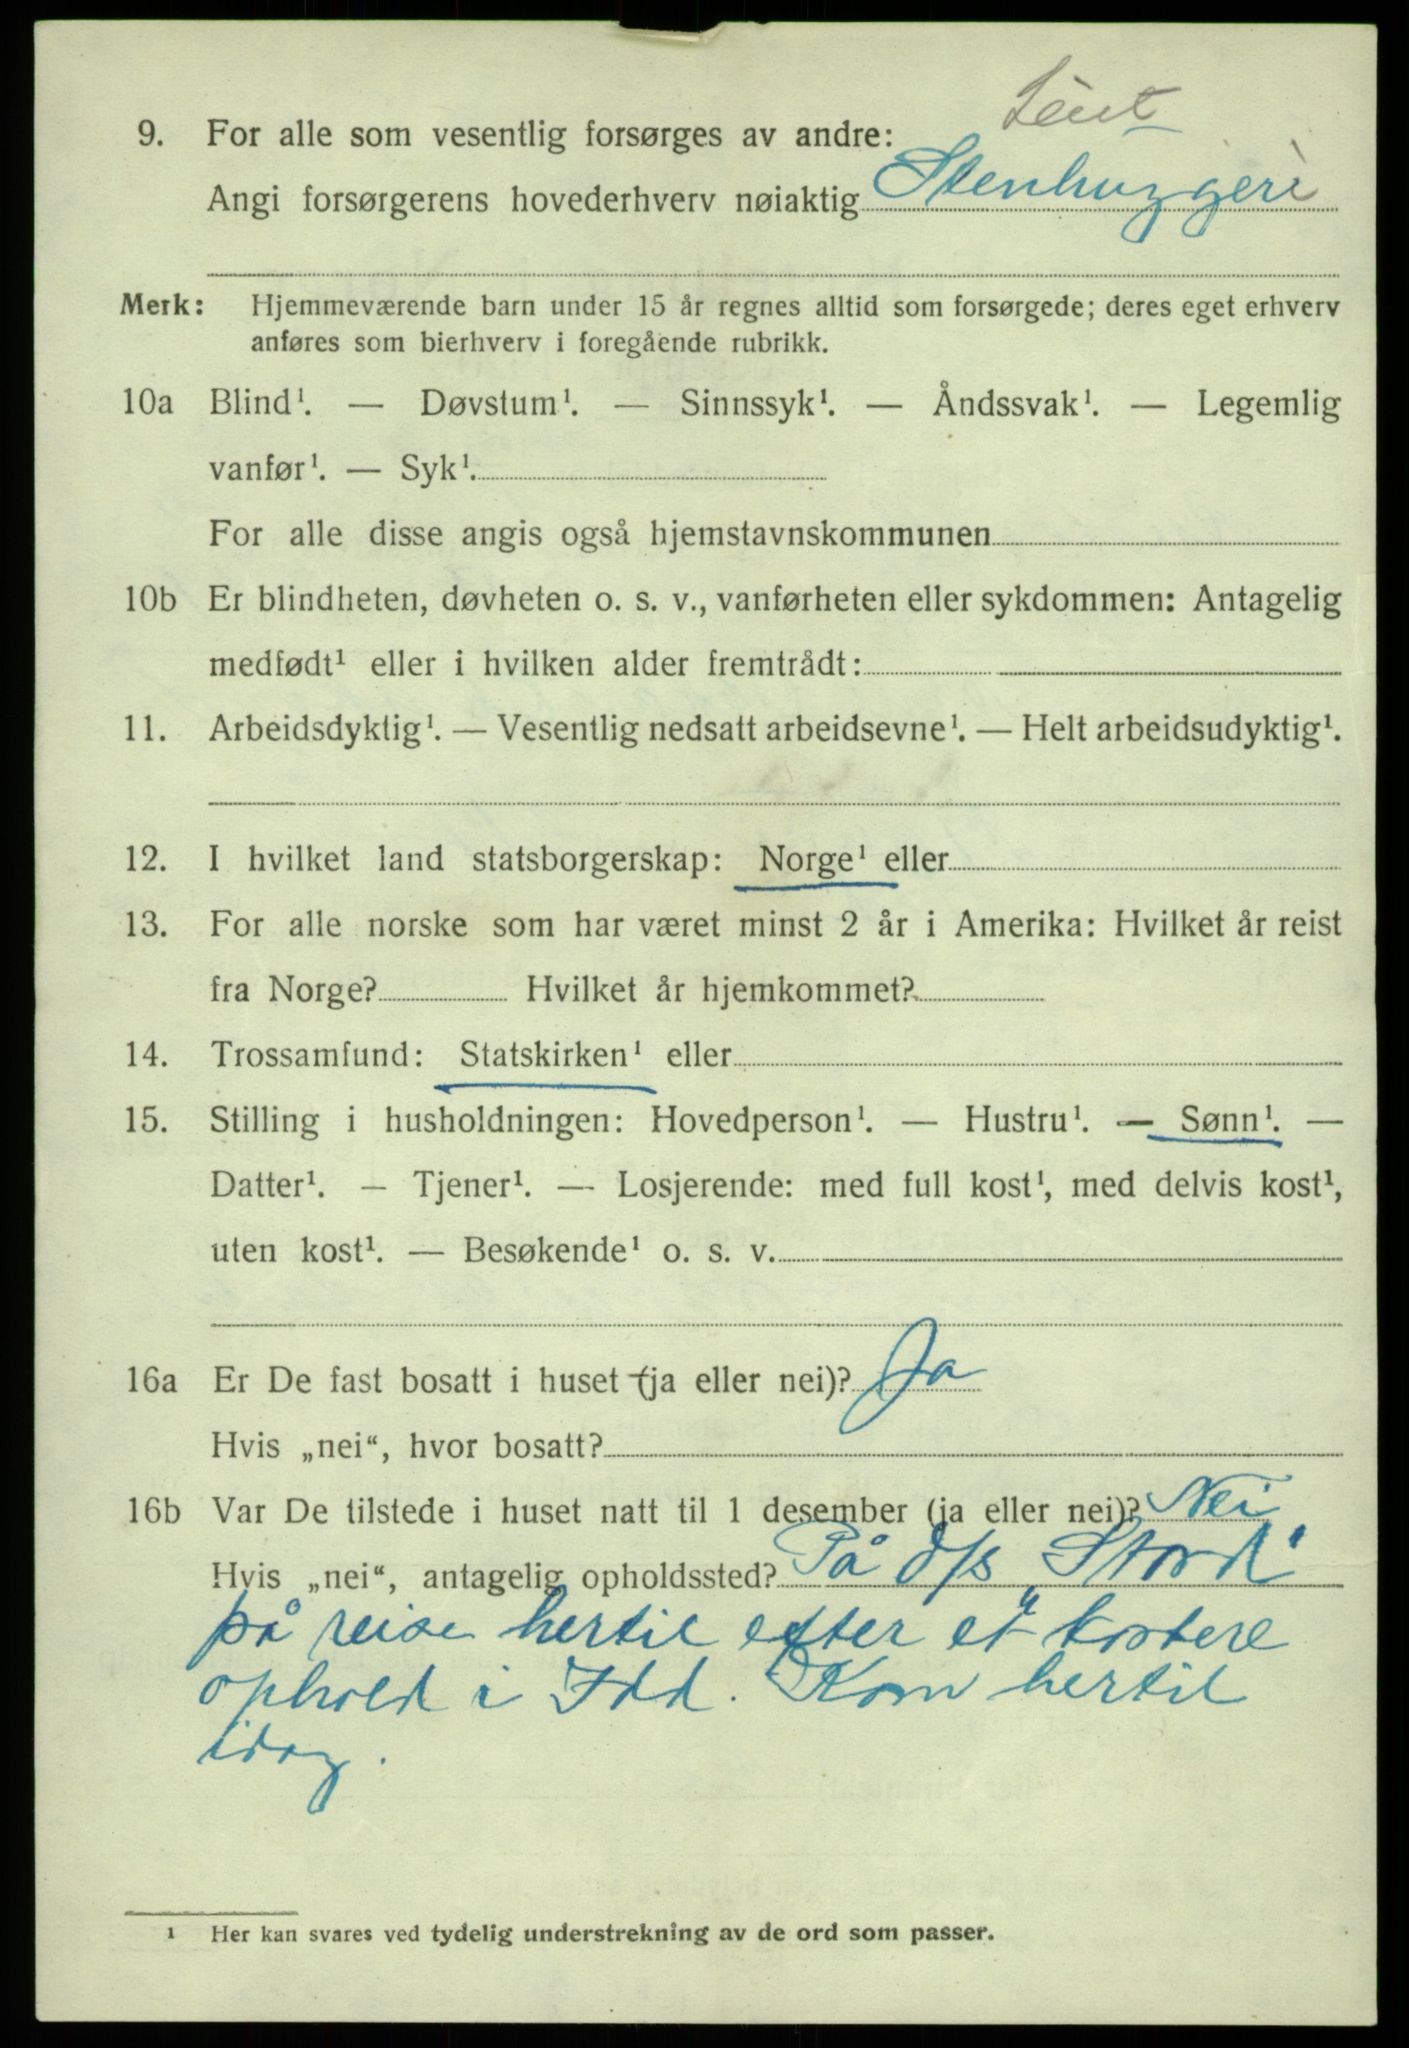 9. For alle som vesentlig forsørges av andre:
Angi forsørgerens hovederhverv nøiaktig Stenhuggeri
Merk: Hjemmeværende barn under 15 år regnes alltid som forsørgede; deres eget erhverv
anføres som bierhverv i foregående rubrikk.
10a Blind¹. — Døvstum¹. — Sinnssyk¹. — Åndssvak¹. — Legemlig
vanfør¹. — Syk¹.
For alle disse angis også hjemstavnskommunen
10b Er blindheten, døvheten o. s. v., vanførheten eller sykdommen: Antagelig
medfødt¹ eller i hvilken alder fremtrådt:
11. Arbeidsdyktig¹. — Vesentlig nedsatt arbeidsevne¹. — Helt arbeidsudyktig¹.
12. I hvilket land statsborgerskap: Norge¹ eller
13. For alle norske som har været minst 2 år i Amerika: Hvilket år reist
fra Norge? Hvilket år hjemkommet?
14. Trossamfund: Statskirken¹ eller
15. Stilling i husholdningen: Hovedperson¹. — Hustru¹. — Sønn¹. —
Datter¹. — Tjener¹. — Losjerende: med full kost¹, med delvis kost¹,
uten kost¹. — Besøkende¹ o. s. v.
16a Er De fast bosatt i huset (ja eller nei)? Ja
Hvis „nei“, hvor bosatt?
16b Var De tilstede i huset natt til 1 desember (ja eller nei)? Nei
Hvis „nei“, antagelig opholdssted? På d/s „Stord"
på reise hertil efter et kortere
ophold i Idd. Kom hertil
idag.
¹ Her kan svares ved tydelig understrekning av de ord som passer.